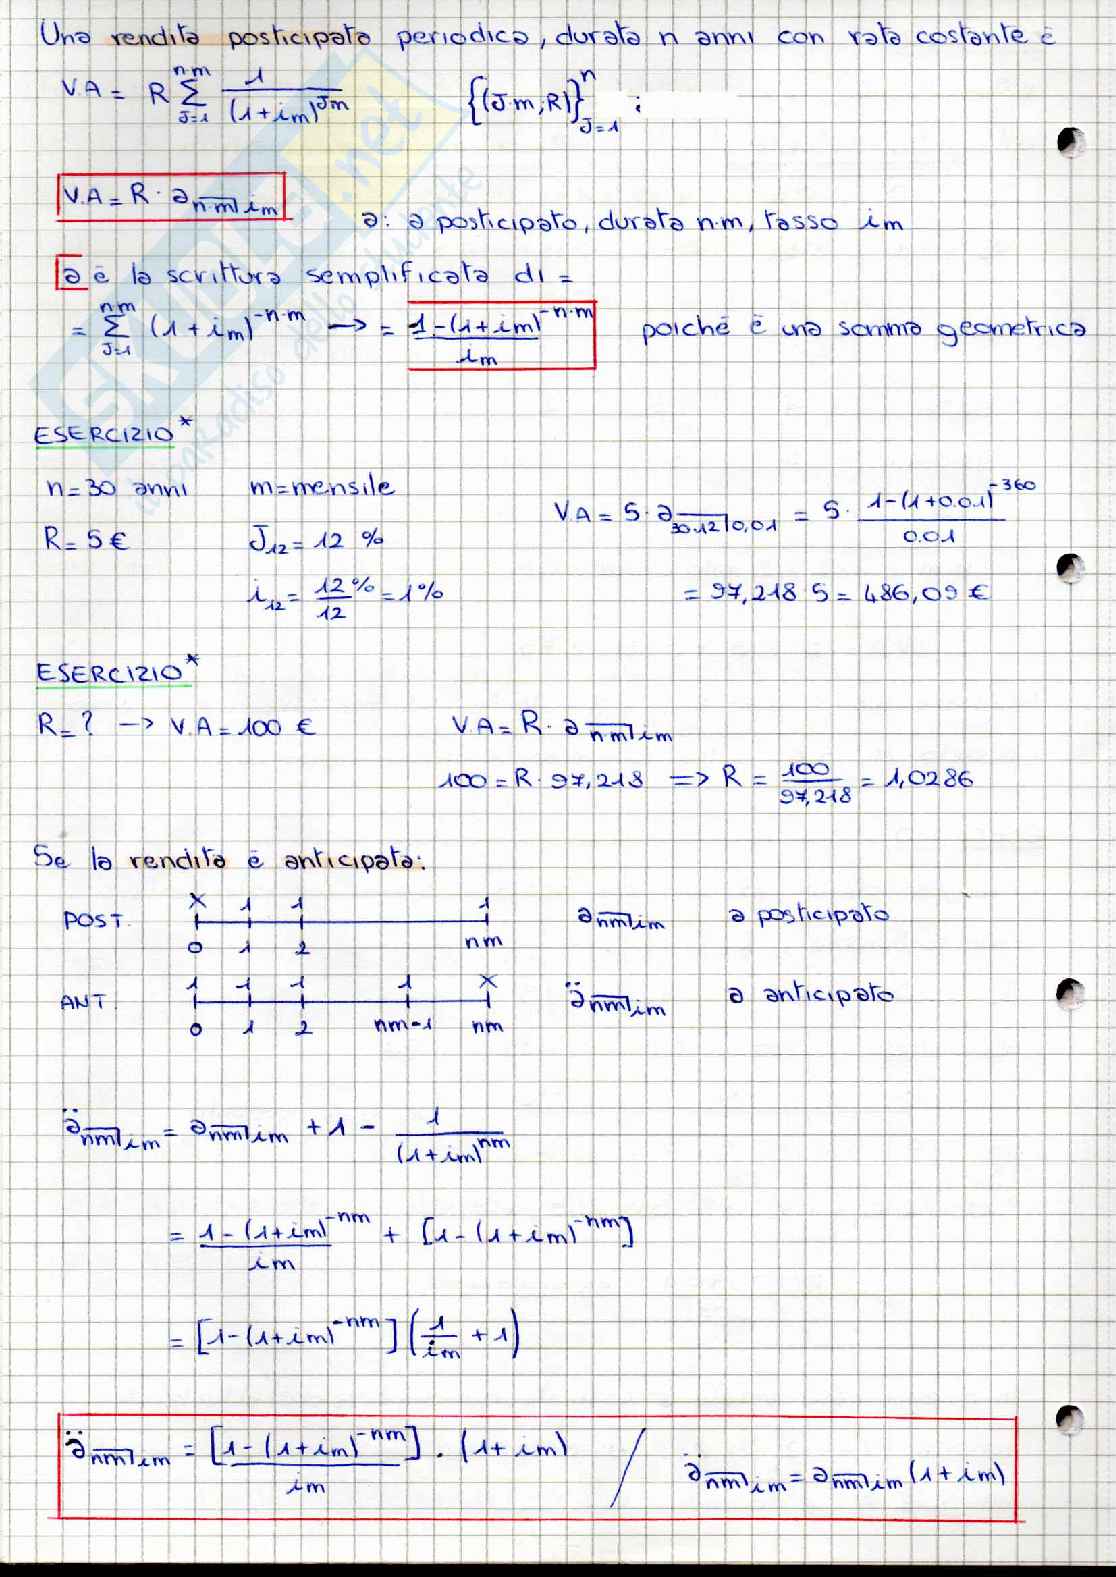 Una rendita posticipata periodica, durata n anni con rata costante è
V.A = R \sum_{J=1}^{nm} \frac{1}{(1+im)^{Jm}} \{(J·m;R)\}_{J=1}^{n} :
V.A = R · a_{\overline{n·m}|im}
a: a posticipato, durata n·m, tasso im
a è la scrittura semplificata di =
= \sum_{J=1}^{nm} (1+im)^{-n·m} → = \frac{1-(1+im)^{-n·m}}{im} poiché è una somma geometrica
ESERCIZIO*
n=30 anni m=mensile
V.A = 5 · a_{\overline{30·12}|0,01} = 5 · \frac{1-(1+0.01)^{-360}}{0.01}
R=5€ J_{12} = 12 %
i_{12} = \frac{12%}{12} = 1% = 97,218 5 = 486,09 €
ESERCIZIO*
R=? → V.A = 100 € V.A = R · a_{\overline{nm}|im}
100 = R · 97,218 => R = \frac{100}{97,218} = 1,0286
Se la rendita è anticipata:
x 1 1 1
POST. a_{\overline{nm}|im} a posticipato
0 1 2 nm
1 1 1 1 x
ANT. ä_{\overline{nm}|im} a anticipato
0 1 2 nm-1 nm
ä_{\overline{nm}|im} = a_{\overline{nm}|im} + 1 - \frac{1}{(1+im)^{nm}}
= \frac{1-(1+im)^{-nm}}{im} + [1-(1+im)^{-nm}]
= [1-(1+im)^{-nm}] (\frac{1}{im} + 1)
ä_{\overline{nm}|im} = \frac{[1-(1+im)^{-nm}]}{im} · (1+im) / ä_{\overline{nm}|im} = a_{\overline{nm}|im} (1+im)